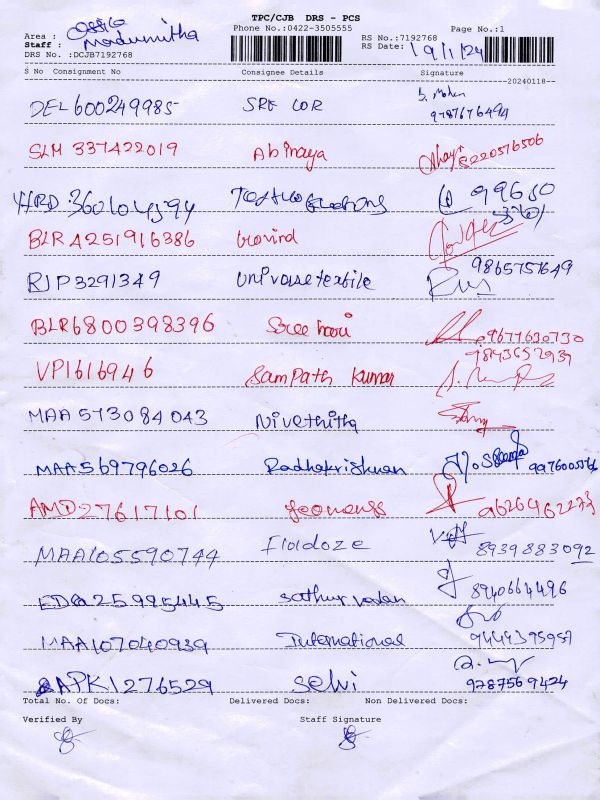 TPC/CJB DRS - PCS
Phone No.:0422-3505555
Page No.:1
Area :
Staff : Madumitha
DRS No. :DCJB7192768
RS No.:7192768
RS Date: 19/1/24
S No Consignment No Consignee Details Signature
20240118
DEL600249985 SRE COR
9787676494
SLM 337422019 Abinaya 8220576506
BLRA251916386 Govind
RJP3291349 Universe textile 9865751649
BLR6800398396 Sree hari 9677630730
VP1616946 Sampath Kumar 9843652937
MAA573084043 Nivethitha
MAA569796026 Radhakrishnan
AMD27617101 9626462273
MAA105590744 8939883092
25995445 8940664496
MAA107040939 International 9444395957
APK1276529 Selvi 9787569424
Total No. Of Docs: Delivered Docs: Non Delivered Docs:
Verified By Staff Signature